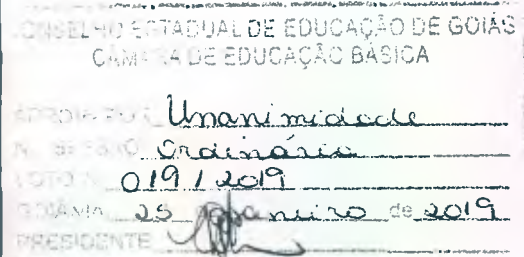 CONSELHO ESTADUAL DE EDUCAÇÃO DE GOIÁS
CÂMARA DE EDUCAÇÃO BÁSICA
APROVA POR Unanimidade
N. SESSÃO Ordinária
VOTO N. 019 / 2019
GOIÂNIA 25 janeiro de 2019
PRESIDENTE